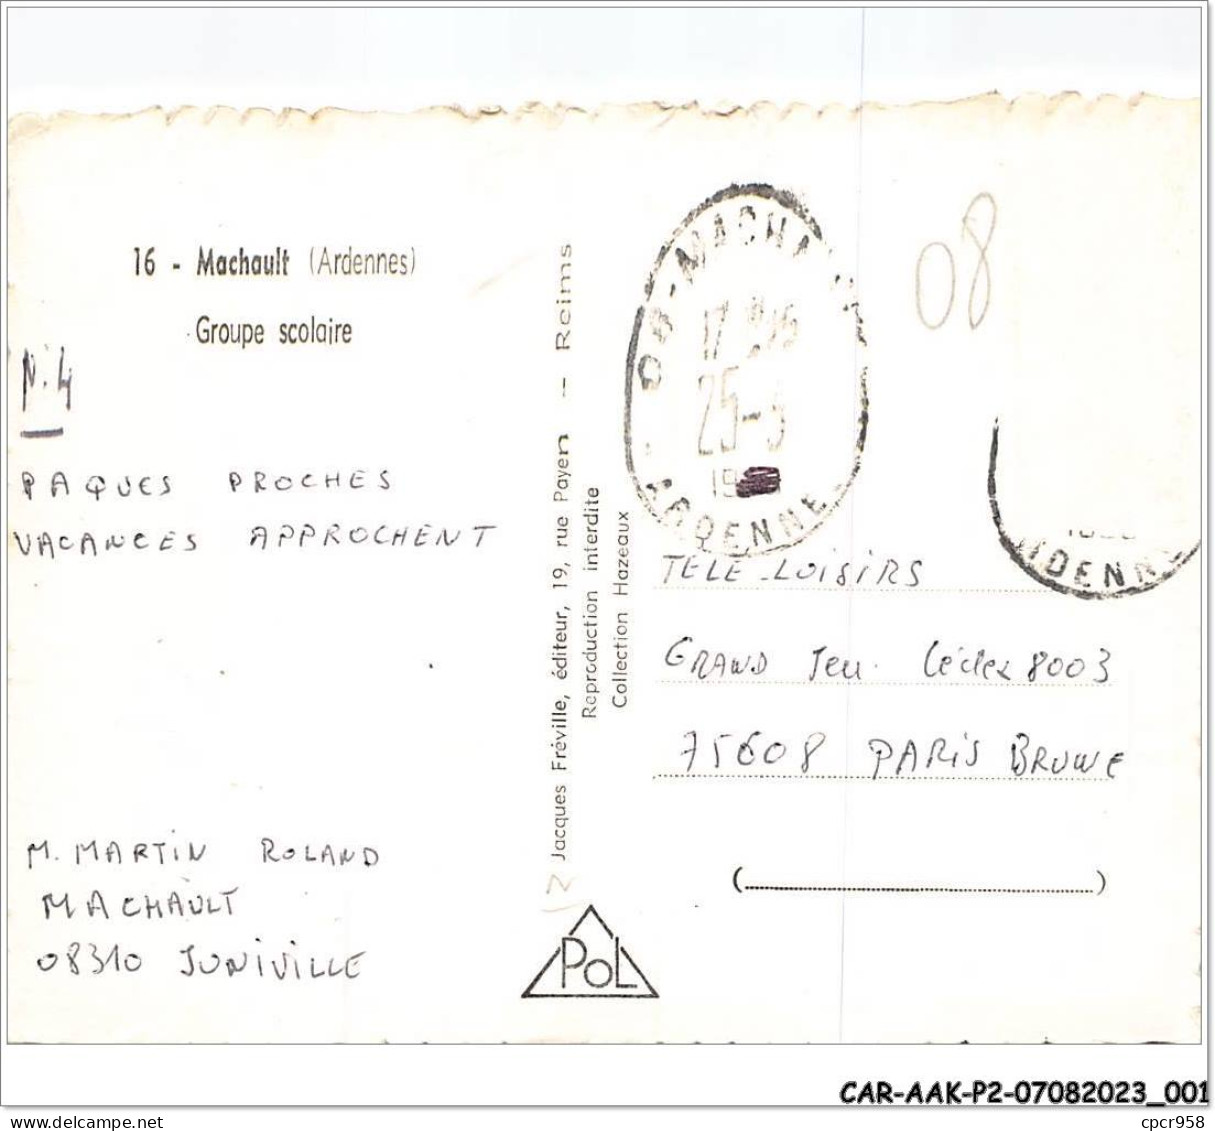 16 - Machault (Ardennes)
Groupe scolaire
N. 4
PAQUES PROCHES
VACANCES APPROCHENT
M. MARTIN ROLAND
MACHAULT
08310 JUNIVILLE
Jacques Fréville, éditeur, 19, rue Payen — Reims
Reproduction interdite
Collection Hazeaux
POL
08-MACHAULT
17 H 15
25-3
19
ARDENNES
08
TELE-LOISIRS
GRAND Jeu. Cédex 8003
75608 PARIS BRUNE
CAR-AAK-P2-07082023_001
cpcr958